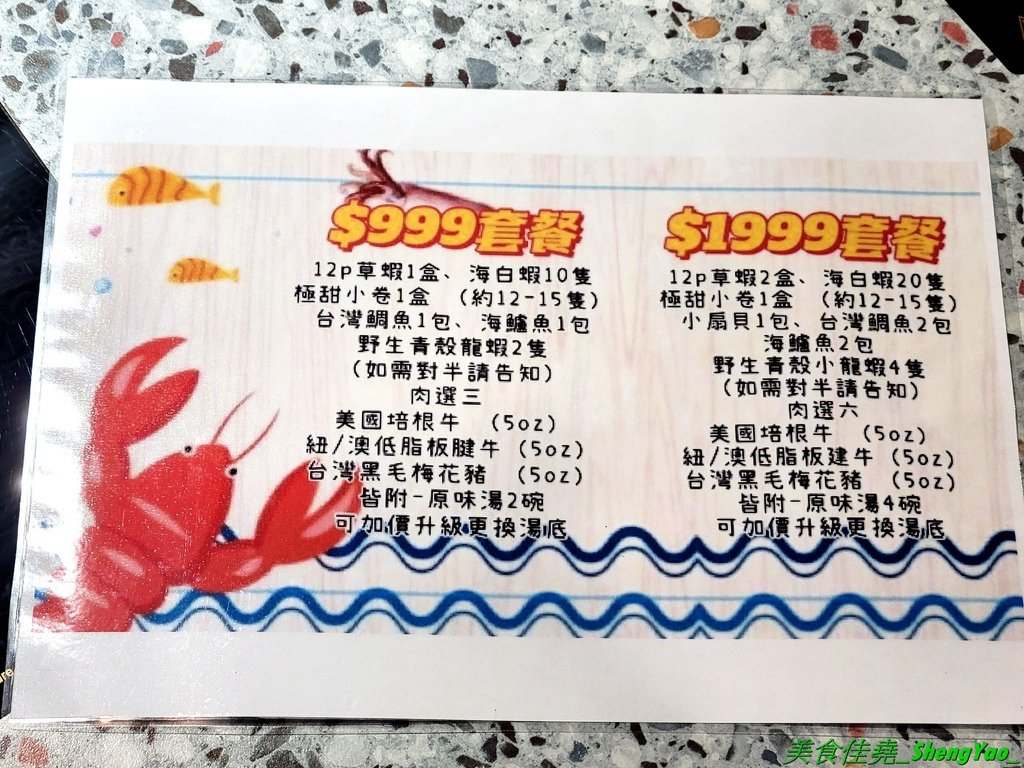 $999套餐
12p草蝦1盒、海白蝦10隻
極甜小卷1盒 (約12-15隻)
台灣鯛魚1包、海鱸魚1包
野生青殼龍蝦2隻
(如需對半請告知)
肉選三
美國培根牛 (5oz)
紐/澳低脂板腱牛 (5oz)
台灣黑毛梅花豬 (5oz)
皆附-原味湯2碗
可加價升級更換湯底
$1999套餐
12p草蝦2盒、海白蝦20隻
極甜小卷1盒 (約12-15隻)
小扇貝1包、台灣鯛魚2包
海鱸魚2包
野生青殼小龍蝦4隻
(如需對半請告知)
肉選六
美國培根牛 (5oz)
紐/澳低脂板建牛 (5oz)
台灣黑毛梅花豬 (5oz)
皆附-原味湯4碗
可加價升級更換湯底
美食佳堯_ShengYao_